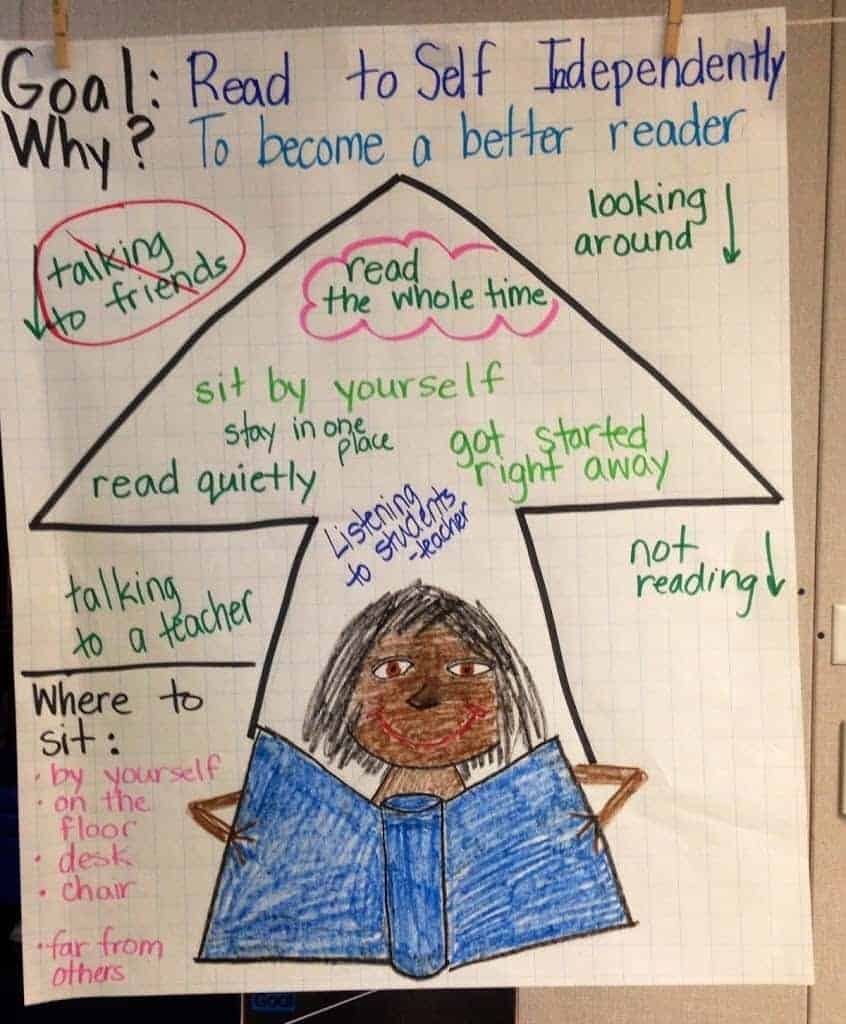 Goal: Read to Self Independently
Why? To become a better reader
talking
to friends
looking
around
read
the whole time
sit by yourself
stay in one
place
read quietly
got started
right away
Listening
to students
-teacher
not
reading
talking
to a teacher
Where to
sit:
· by yourself
· on the
floor
· desk
· chair
· far from
others
Goal